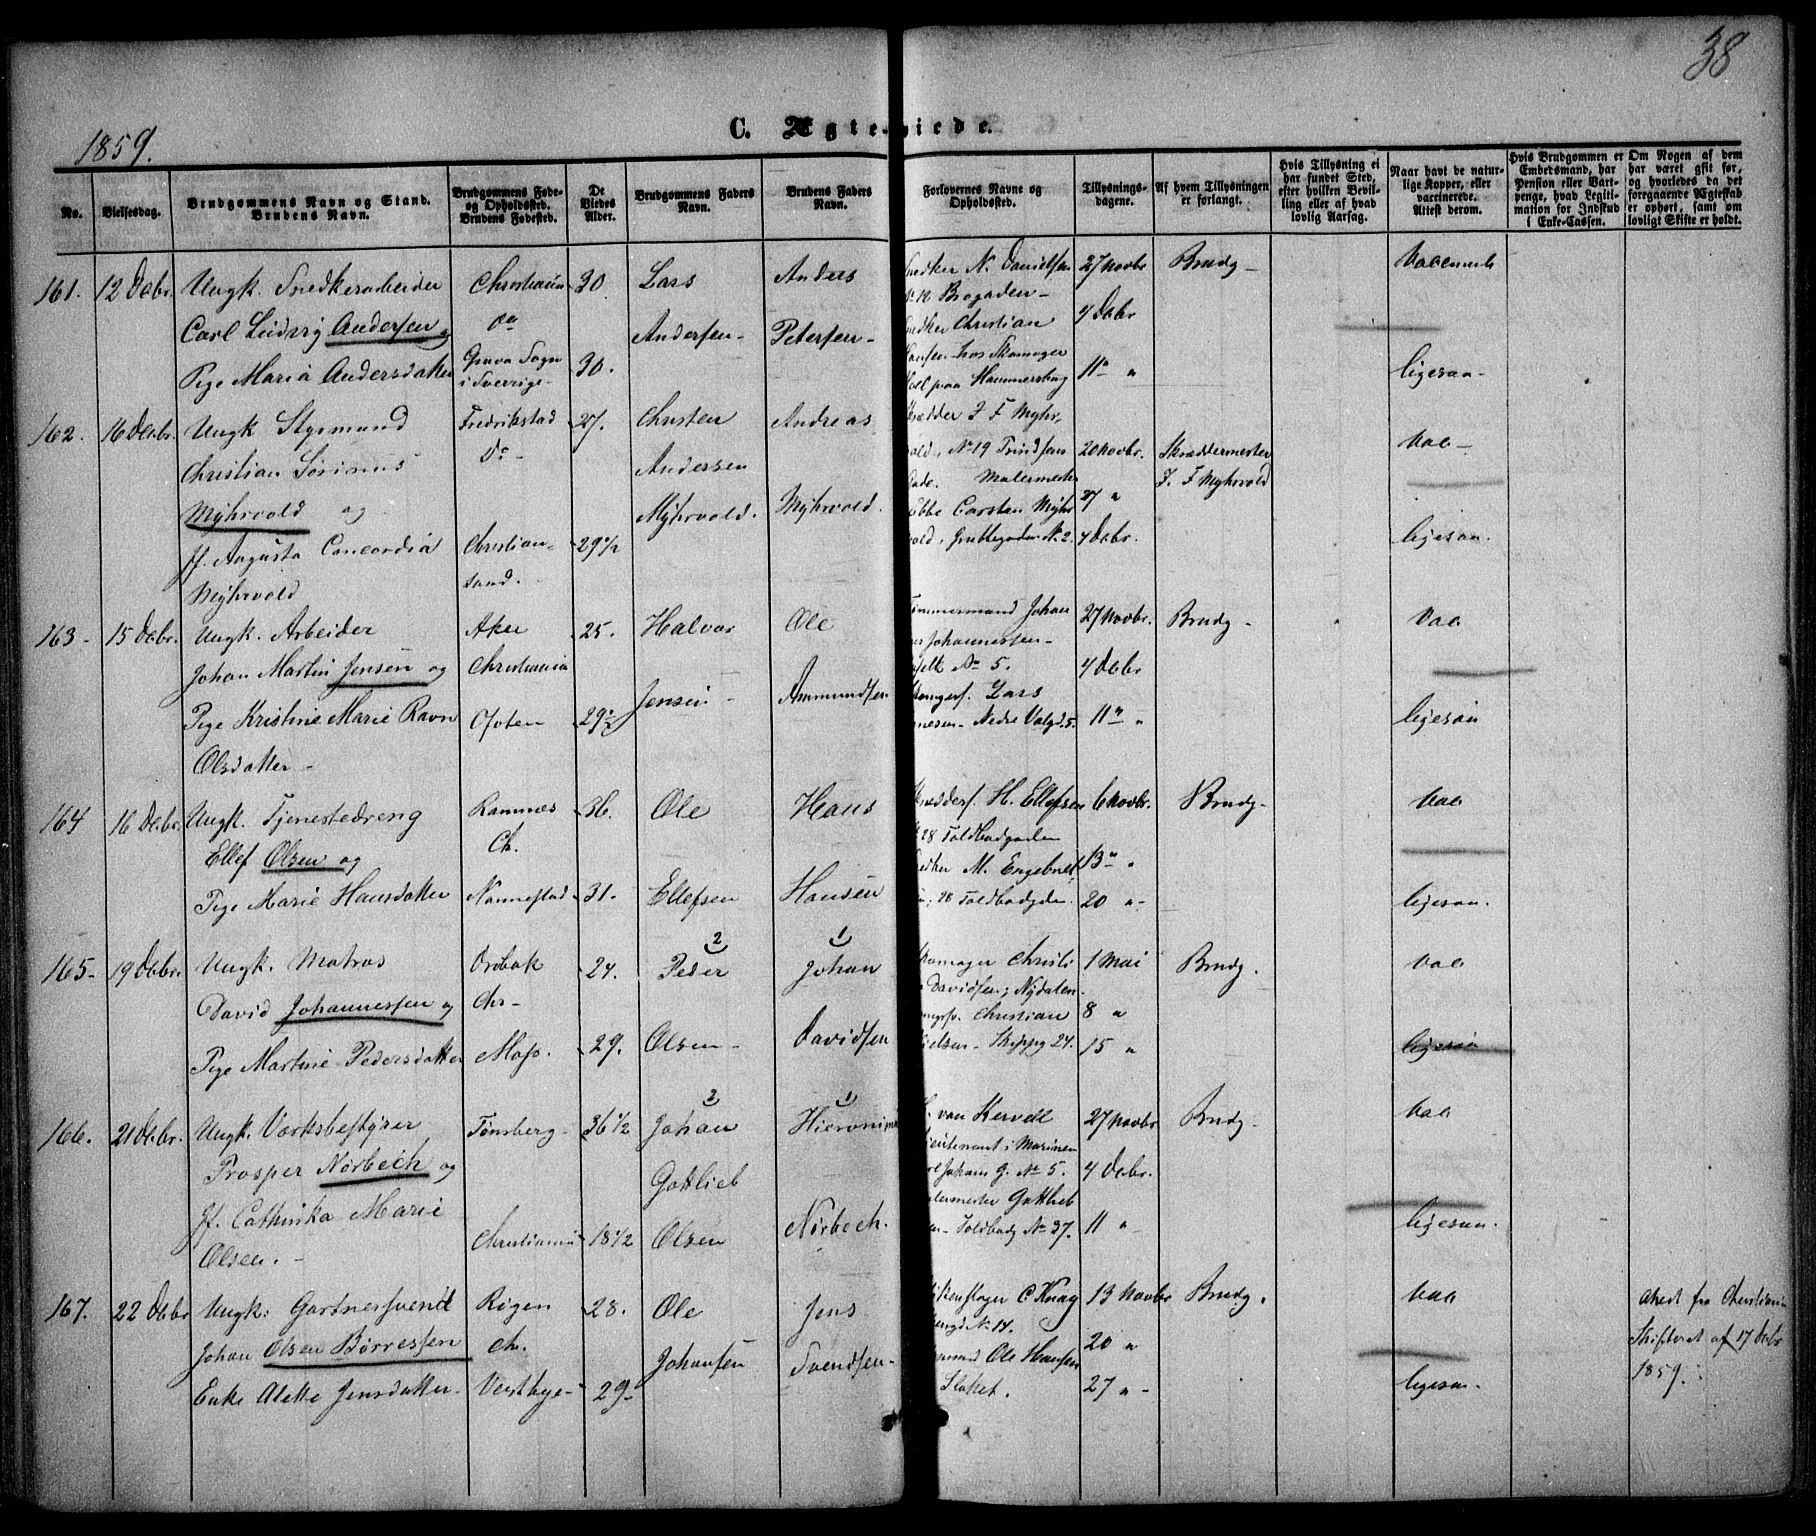 38
1859.
C. Ægteviede.
No.
Vielsesdag.
Brudgommens Navn og Stand.
Brudens Navn.
Brudgommens Føde-
og Opholdssted.
Brudens Fødested.
De
Viedes
Alder.
Brudgommens Faders
Navn.
Brudens Faders
Navn.
Forlovernes Navne og
Opholdssted.
Tillysnings-
dagene.
Af hvem Tillysningen
er forlangt.
Hvis Tillysning ei
har fundet Sted,
efter hvilken Bevil-
ling eller af hvad
lovlig Aarsag.
Naar havt de natur-
lige Kopper, eller
vaccinerede.
Attest derom.
Hvis Brudgommen er
Embedsmand, har
Pension eller Vart-
penge, hvad Legiti-
mation for Indskud
i Enke-Cassen.
Om Nogen af dem
har været gift før,
og hvorledes da det
foregaaende Ægteskab
er ophørt, samt om
lovligt Skifte er holdt.
161. 12 Debr. Ungk. Snedkerarbeider Christiania 30 Lars Anders
Carl Ludvig Andersen og do Andersen- Petersen-
Pige Maria Andersdatter Grava Sogn i Sverrige- 30.
Snedker N. Danielsen 27 Novbr Brudg-
No 12 Brogaden-
Snedker Christian 4 Debr
Hansen hos Skomager
paa Hammersborg 11 " ligesaa-
162. 16 Debr. Ungk Styrmand Fredrikstad 27. Christen Andreas
Christian Do- Andersen
Myhrvold og Myhrvold. Myhrvold.
Jf. Augusta Concordia Christian- 29 1/2
Myhrvold sand.
Skrædder J F Myhr-
vold, No 19 20 Novbr. Skræddermester Vac-
Malermester J. F Myhrvold
Ebbe Carsten Myhr 27 "
vold, Grubbegaden No. 2. 4 Debr. ligesaa.
163- 15 Debr. Ungk. Arbeider Aker 25. Halvor Ole
Johan Martin Jensen og Christiania
Pige Kristine Marie Ravn Toten 29 1/2 Jensen- Ammundsen
Olsdatter-
Tømmermand Johan 27 Novbr. Brudg- Vac
Johannesen-
No 5. 4 Debr
Lars
Nedre Volgd. 5. 11 " ligesaa
164 16 Debr. Ungk. Tjenestedreng Ramnes 36. Ole Hans
Ellef Olsen og Ch.
Pige Marie Hansdatter Nannestad 31. Ellefsen Hansen
H. Ellefsen 6 Novbr. Brudg- Vac
28 Toldbodgaden
Snedker M. Engebret 13 "
28 Toldbodgden. 20 " ligesaa.
165- 19 Debr. Ungk. Matros Drøbak 24. 2 Peder 1 Johan
David Johannessen og Chr-
Pige Martine Pedersdatter Moss. 29. Olsen- Davidsen
Skomager Christi 1 Mai Brudg. Vac
Davidsen, Nydalen.
Christian 8 "
Nielsen- Skippg 24. 15 " ligesaa
166. 21 Debr. Ungk. Værksbestyrer Tønsberg- 36 1/2 2 Johan 1 Hieronimus
Prosper Nørbech og Gottlieb
Jf. Cathinka Marie Christiania 18 1/2 Olsen Nørbech.
Olsen.-
van Kervell 27 Novbr Brudg- Vac
Lieutenant i Marinen
Carl Johans G. No 5. 4 Debr.
Malermester Gottlieb
Toldbodg No 37. 11 " ligesaa.
167. 22 Debr Ungk. Gartnersvend Røgen 28. Ole Jens
Johan Olsen Børressen Ch. Johansen Svendsen-
Enke Alette Jensdatter- Vestbye- 29-
C Knag 13 Novbr Brudg. Vac
No 14. 20 "
Ole Hansen
Slottet. 27 "- ligesaa.
Attest fra Christiania
Skifteret af 17 Debr
1859.